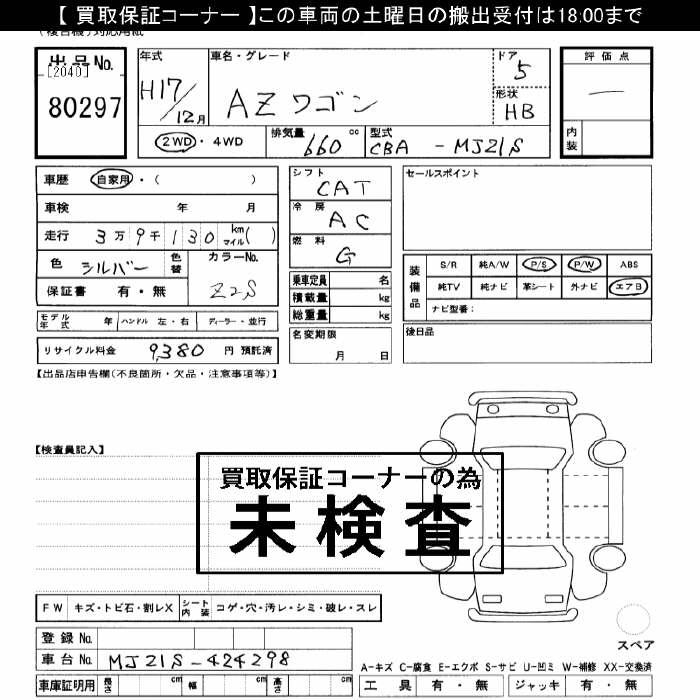 【 買取保証コーナー 】この車両の土曜日の搬出受付は18:00まで
(複合機)対応用紙
出品No.
[2040]
80297
年式
H17/12月
車名・グレード
AZワゴン
ドア
5
形状
HB
評価点
—
内装
2WD・4WD
排気量
660 cc
型式
CBA - MJ21S
車歴 自家用・( )
車検 年 月
走行 3万9千130 km マイル( )
色 シルバー 色替
カラーNo.
Z2S
保証書 有・無
モデル年式 年 ハンドル 左・右 ディーラー・並行
リサイクル料金 9,380 円 預託済
シフト
CAT
冷房
AC
燃料
G
乗車定員 名
積載量 kg
総重量 kg
名変期限
月 日
セールスポイント
装備品
S/R 純A/W P/S P/W ABS
純TV 純ナビ 革シート 外ナビ エアB
ナビ型番:
後日品
【出品店申告欄(不良箇所・欠品・注意事項等)】
【検査員記入】
買取保証コーナーの為
未検査
FW キズ・トビ石・割レX シート内装 コゲ・穴・汚レ・シミ・破レ・スレ
登録No.
車台No. MJ21S-424298
車庫証明用 長さ cm 幅 cm 高さ cm
スペア
A-キズ C-腐食 E-エクボ S-サビ U-凹ミ W-補修 XX-交換済
工具 有・無 ジャッキ 有・無